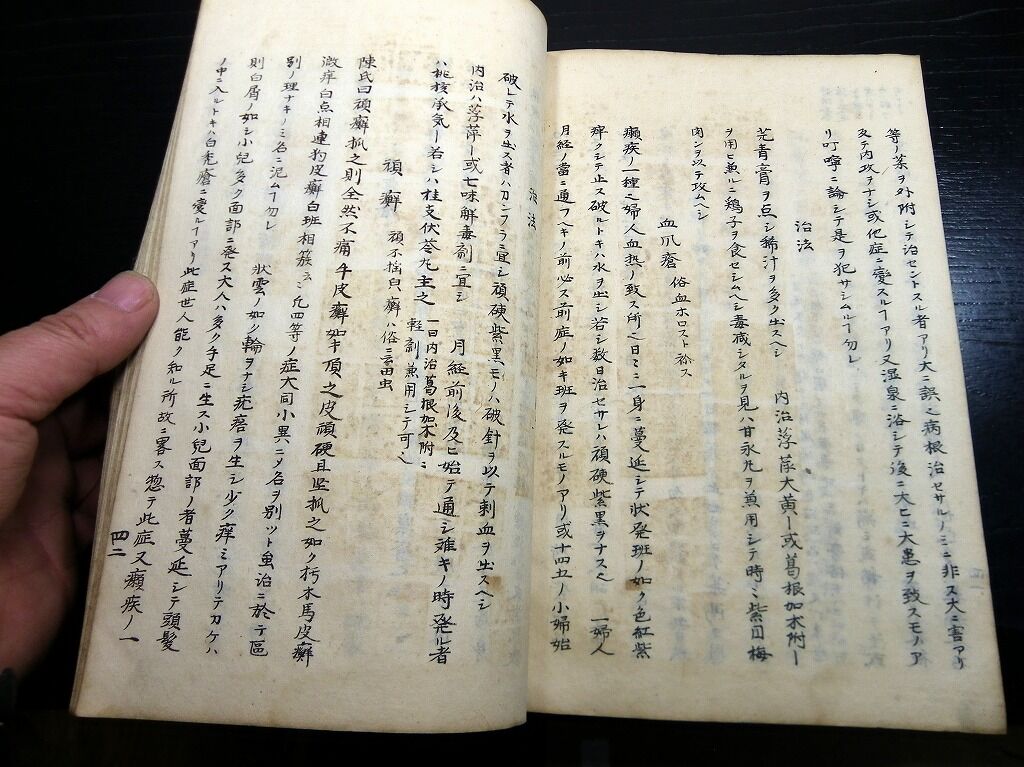 等ノ薬ヲ外附シテ治セントスル者アリ大ニ誤之病根治セサルノミニ非ス大ニ害アリ
反テ内攻ヲナシ或他症ニ變スルーアリ又温泉ニ浴シテ後ニ大ヒニ大患ヲ致スモノアリ
リ叮嚀ニ論シテ是ヲ犯サシムルー勿レ
治法
芫青膏ヲ点シ稀汁ヲ多ク出スヘシ
内治浮萍大黄ー或葛根加朮附ー
ヲ用ヒ兼ルニ鶏子ヲ食セシムヘシ毒減シタルヲ見ハ甘永丸ヲ兼用シテ時ミ紫円梅
肉ンヲ以テ攻ムヘシ
血爪瘡 俗血ホロスト称ス
癩疾ノ一種之婦人血热ノ致ス所之日ミニ一身ニ蔓延シテ状発班ノ如ク色紅紫
痺クシテ止ス破ルトキハ水ヲ出シ若シ数日治セサレハ頑硬紫黒ヲナスヘ 一婦人
月経ノ當ニ通フヘキノ前必ス前症ノ如キ班ヲ発スルモノアリ或十四五ノ小婦始
破レテ水ヲ出ス者ハ刀ンフラニ宜シ頑硬紫黒モノハ破針ヲ以テ刺血ヲ出スヘシ
治法
内治ハ浮萍ー或七味解毒剤ニ宜シ
月経前後及ヒ始テ通シ難キノ時発ル者
ハ桃核承気ー若シハ桂支伏苓丸主之
一曰内治葛根加朮附ニ
軽剤兼用シテ可之
頑癬
頑不指臼癬ハ俗ニ云田虫
陳氏曰頑癬抓之則全然不痛牛皮癬如キ頂之皮頑硬且坚抓之如ク朽木馬皮癬
微痒白点相連豹皮癬白班相簇云ミ凢四等ノ症大同小異ニメ名ヲ別ット虽治ニ於テ區
別ノ理ナキノミ名ニ泥ムー勿レ
状雲ノ如ク輪ヲナシ疙瘩ヲ生シ少ク痒ミアリテカケハ
則白屑ノ如シ小兒多ク面部ニ発ス大人ハ多ク手足ニ生ス小兒面部ノ者蔓延シテ頭髪
ノ中ニ入ルトキハ白禿瘡ニ變ルーアリ此症世人能ク知ル所故ニ畧ス惣テ此症又癩疾ノ一
四二